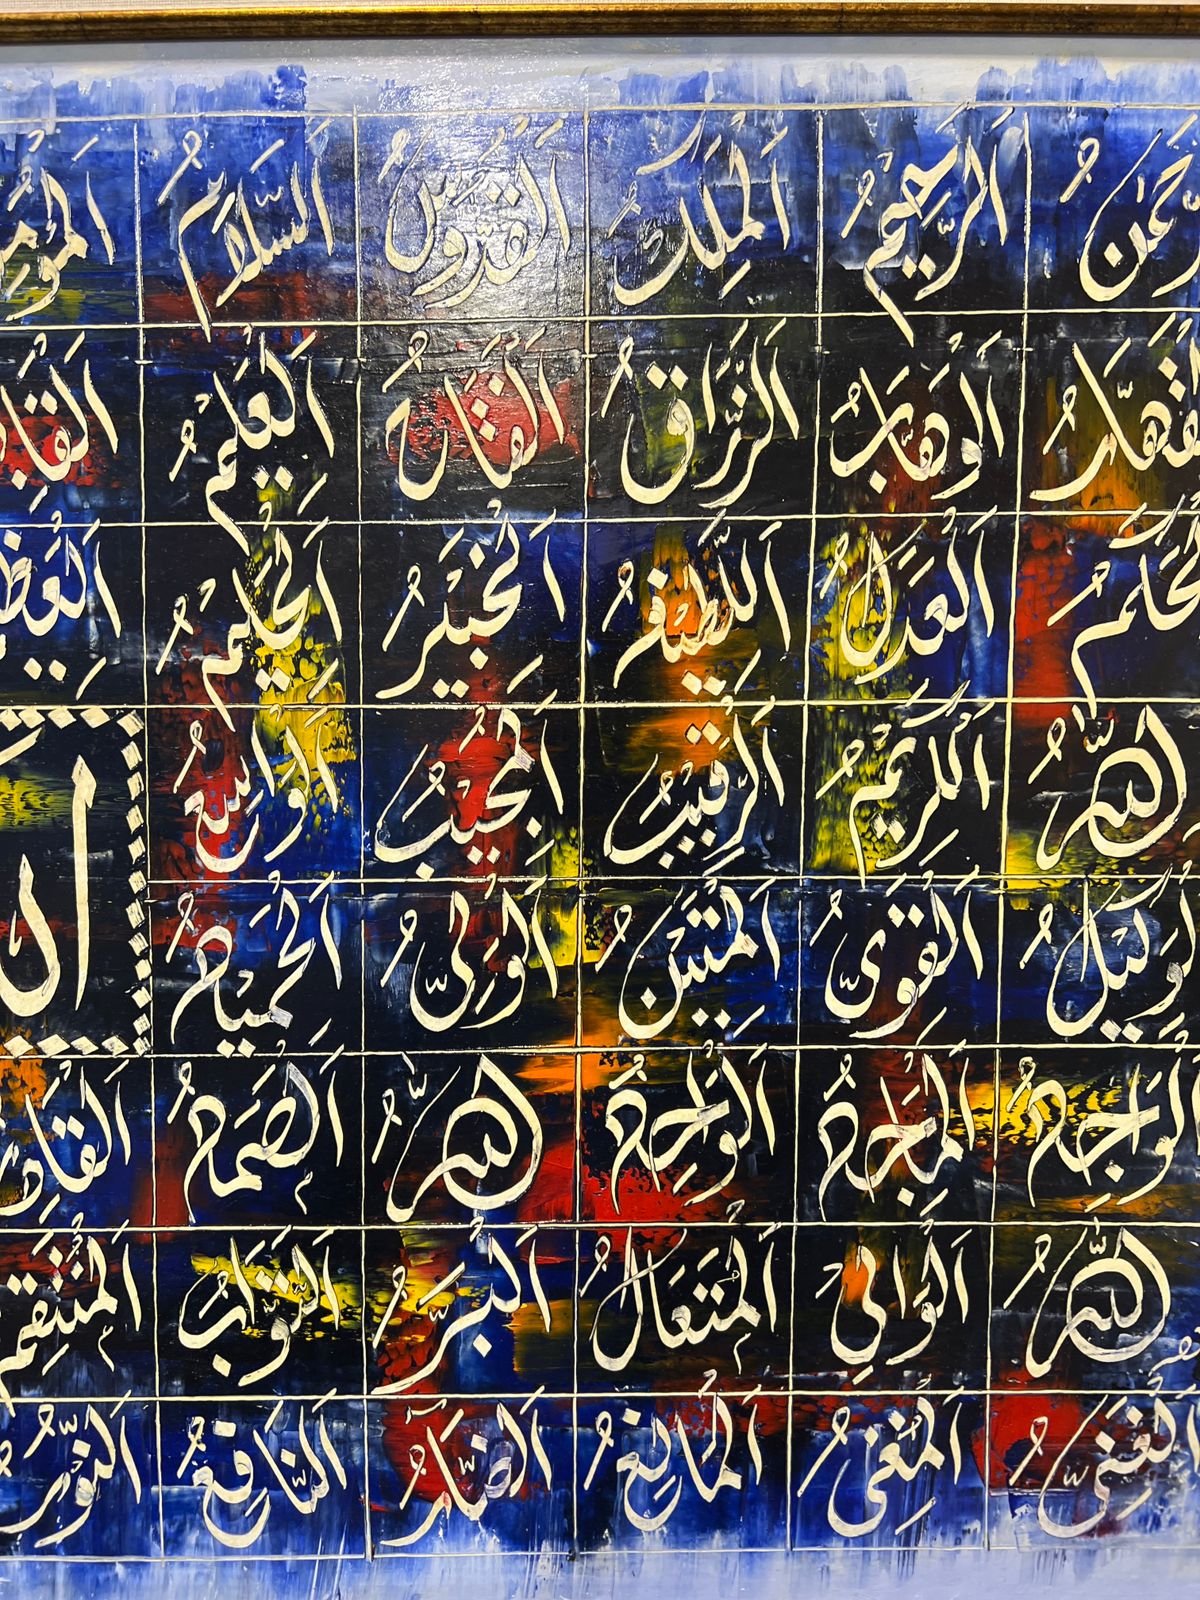 الرَّحِيمُ الْمَلِكُ الْقُدُّوسُ السَّلَامُ
الْقَهَّارُ الْوَهَّابُ الرَّزَّاقُ الْفَتَّاحُ الْعَلِيمُ
الْعَدْلُ اللَّطِيفُ الْخَبِيرُ الْحَلِيمُ
اللَّهُ الْكَرِيمُ الرَّقِيبُ الْمُجِيبُ الْوَاسِعُ
الْقَوِيُّ الْمَتِينُ الْوَلِيُّ الْحَمِيدُ
الْمَاجِدُ الْوَاحِدُ اللَّهُ الصَّمَدُ
اللَّهُ الْوَالِي الْمُتَعَالُ الْبَرُّ التَّوَّابُ الْمُنْتَقِمُ
الْغَنِيُّ الْمُغْنِي الْمَانِعُ الضَّارُّ النَّافِعُ النُّورُ